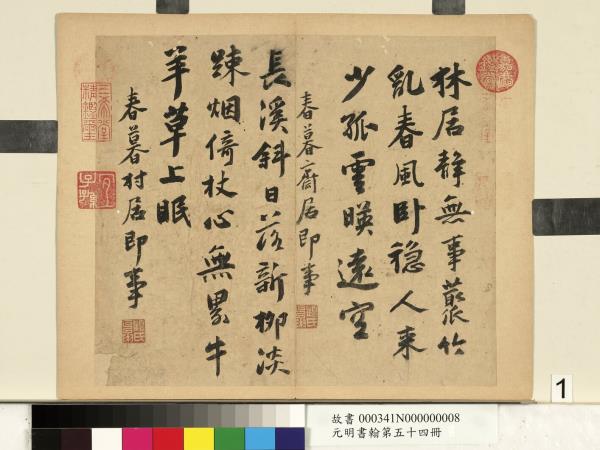 林居靜無事叢竹
亂春風卧穩人来
少孤雲暎遠空
春暮齋居即事
長溪斜日落新柳淡
踈烟倚杖心無累牛
羊草上眠
春暮村居即事
三希堂
精鑑璽
宜
子孫
1
故書 000341N000000008
元明書翰第五十四冊